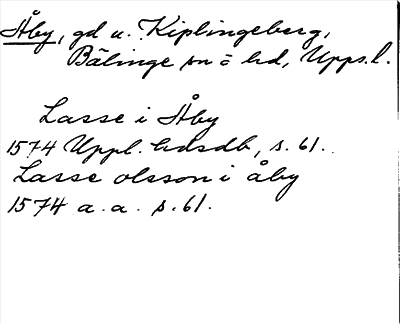 Åby, gd u. Kiplingeberg,
Bälinge sn o hd, Upps.l.
Lasse i Åby
1574 Uppl. hdsdb, s. 61.
Lasse olsson i åby
1574 a. a. s. 61.